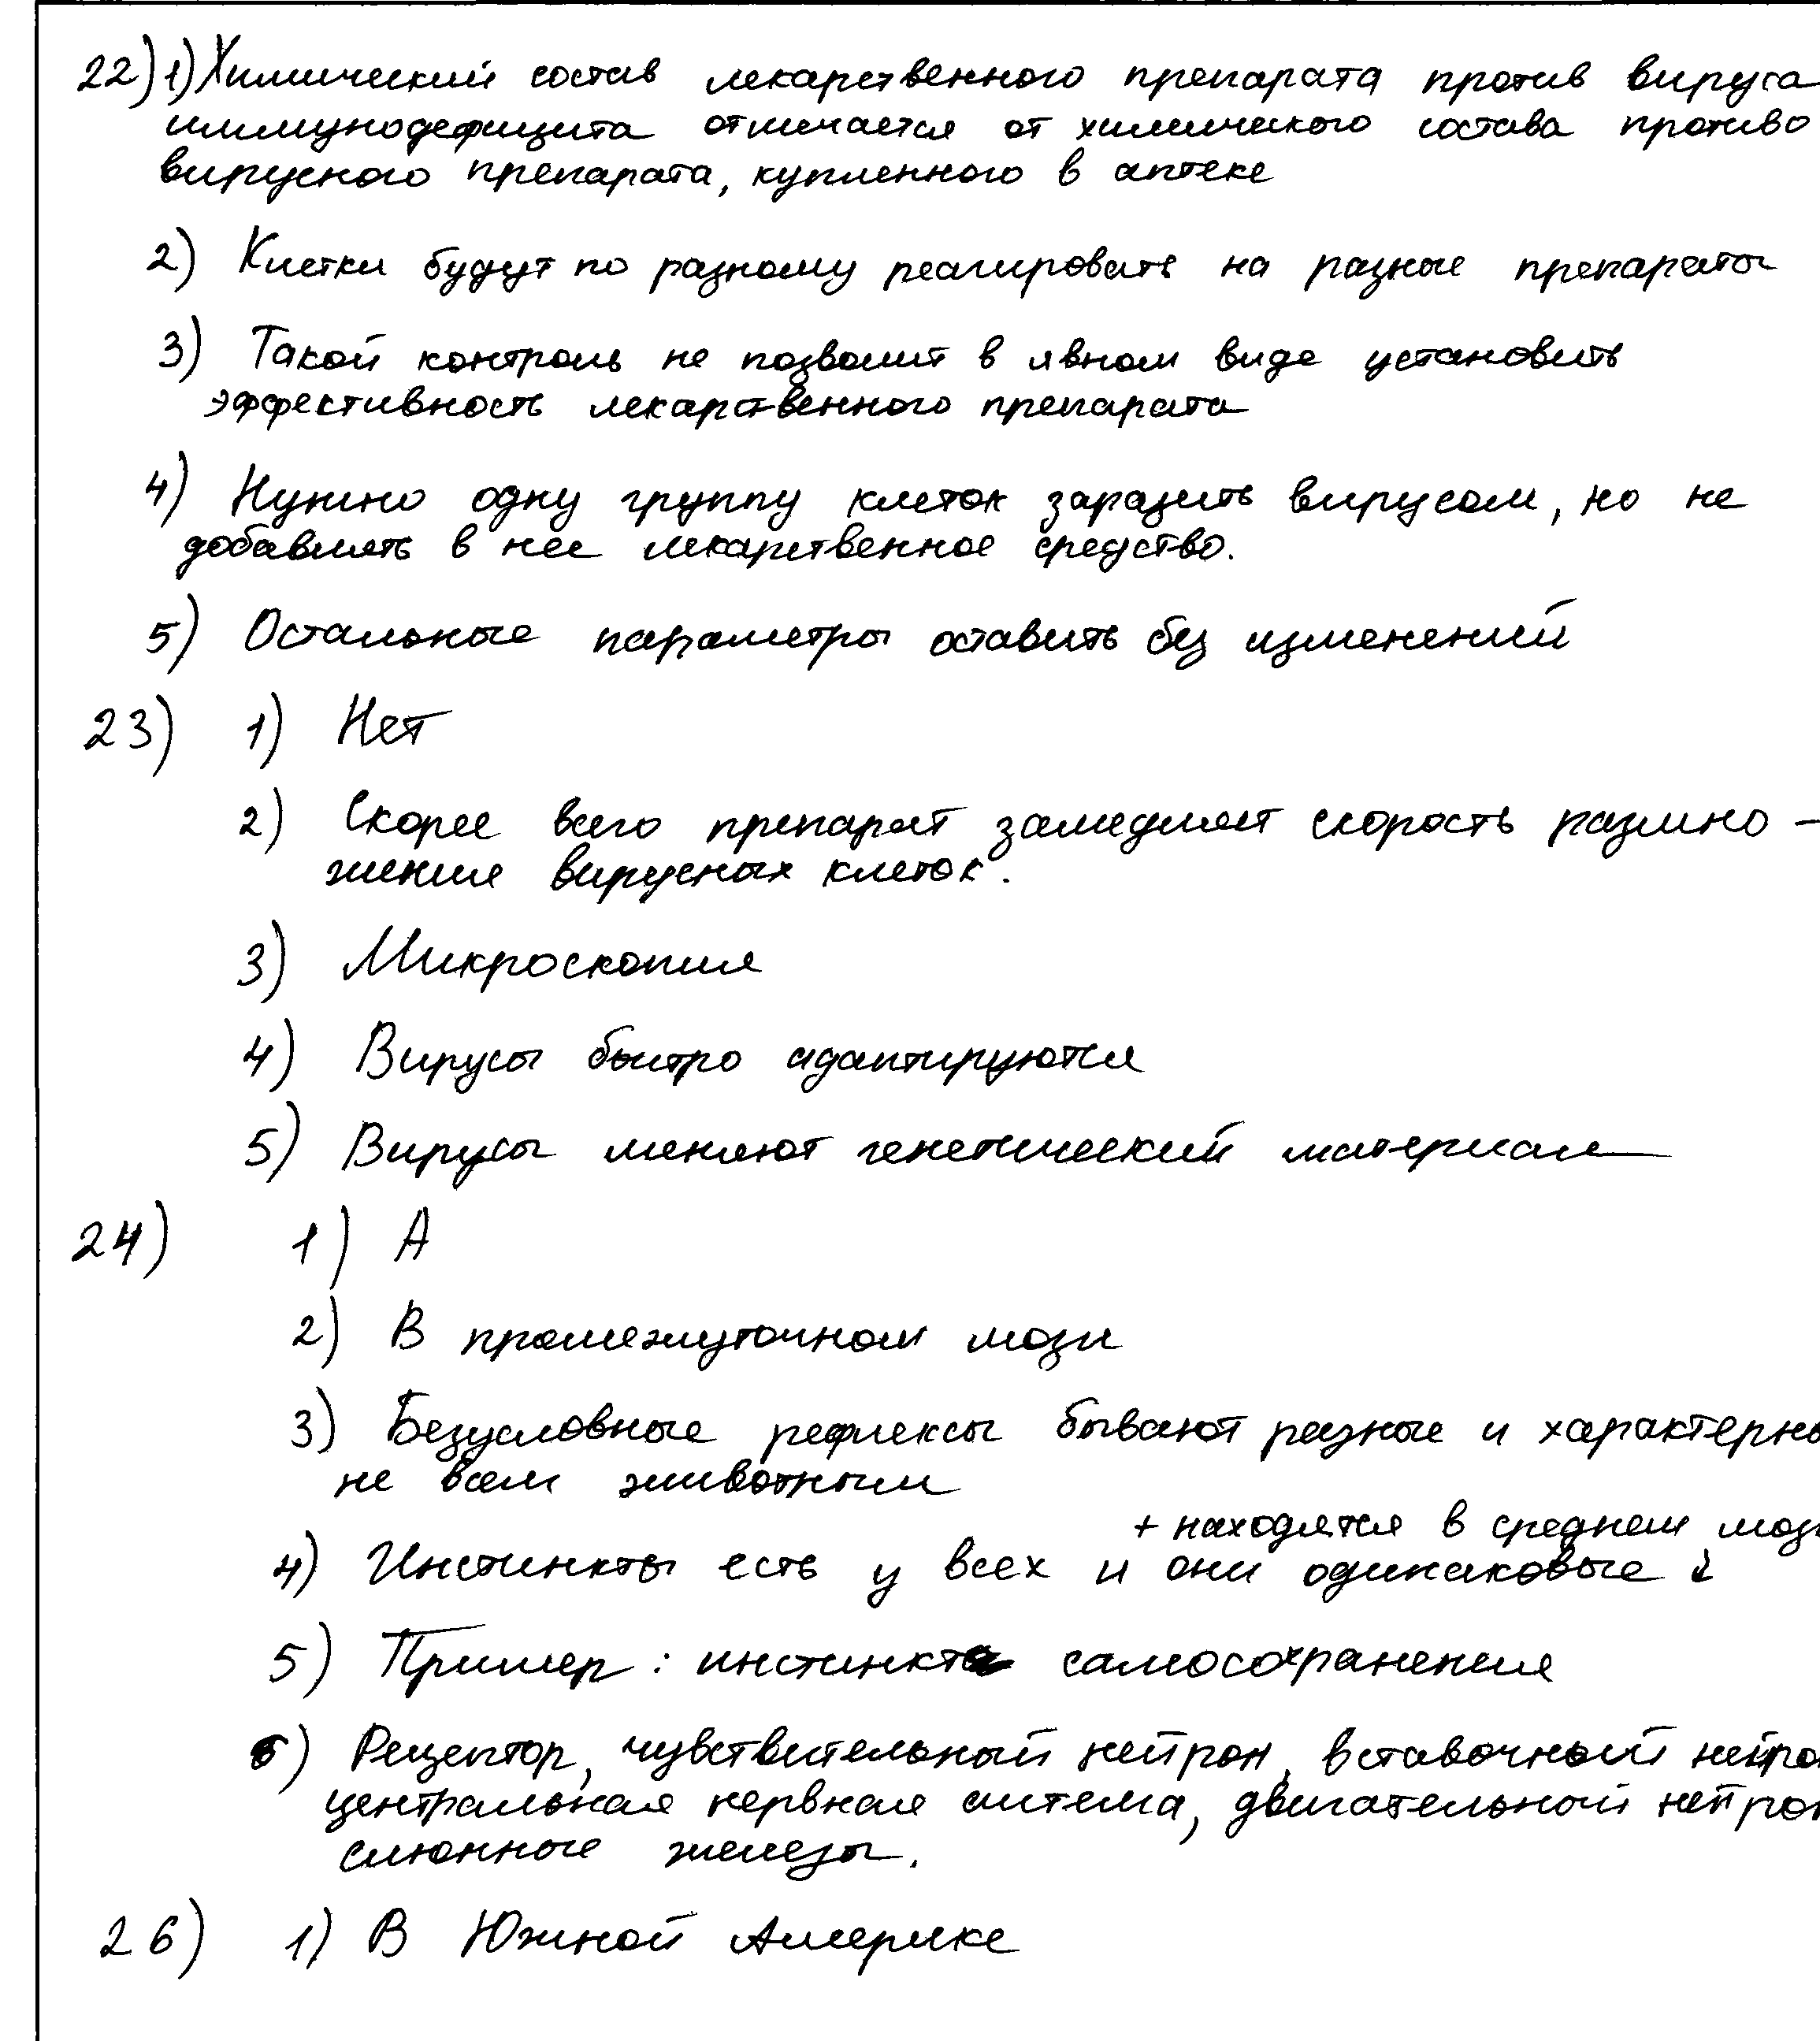 22) 1) Химический состав лекарственного препарата против вируса
иммунодефицита отличается от химического состава противо
вирусного препарата, купленного в аптеке
2) Клетки будут по разному реагировать на разные препараты
3) Такой контроль не позволит в явном виде установить
эффективность лекарственного препарата
4) Нужно одну группу клеток заразить вирусом, но не
добавлять в нее лекарственное средство.
5) Остальные параметры оставить без изменений
23) 1) Нет
2) Скорее всего препарат замедляет скорость размно-
жение вирусных клеток.
3) Микроскопия
4) Вирусы быстро адаптируются
5) Вирусы меняют генетический материал
24) 1) А
2) В промежуточном мозги
3) Безусловные рефлексы бывают разные и характерны
не всем животным
+ находятся в среднем мозг
4) Инстинкты есть у всех и они одинаковые ↓
5) Пример: инстинкт самосохранения
6) Рецептор, чувствительный нейрон, вставочный нейрон
центральная нервная система, двигательный нейрон
слюнные железы.
26) 1) В Южной Америке